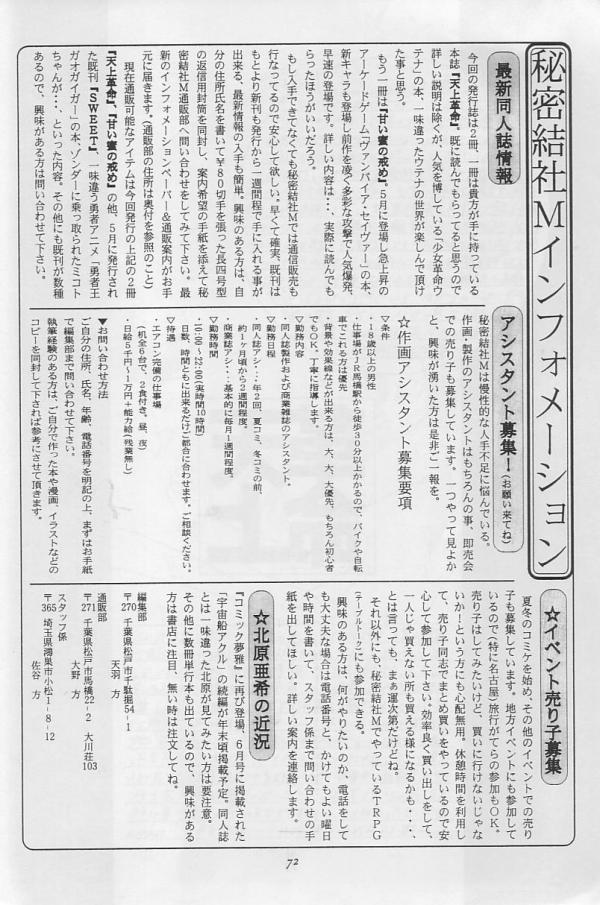 秘密結社Mインフォメーション
最新同人誌情報
今回の発行誌は2冊、一冊は貴方が手に持っている
本誌『天上革命』。既に読んでもらってると思うので
詳しい説明は除くが、人気を博している「少女革命ウ
テナ」の本、一味違ったウテナの世界が楽しんで頂け
た事と思う。
もう一冊は『甘い蜜の戒め』。5月に登場し急上昇の
アーケードゲーム「ヴァンパイア・セイヴァー」の本、
新キャラも登場し前作を凌ぐ多彩な攻撃で人気爆発、
早速の登場です。詳しい内容は・・・、実際に読んでも
らったほうがいいだろう。
もし入手できてなくても秘密結社Mでは通信販売も
行なってるので安心して欲しい。早くて確実、既刊は
もとより新刊も発行から一週間程で手に入れる事が
出来る、最新情報の入手も簡単。興味のある方は、自
分の住所氏名を書いて￥80切手を張った長四号型
の返信用封筒を同封し、案内希望の手紙を添えて秘
密結社M通販部へ問い合わせをしてみて下さい。最
新のインフォメーションペーパー&通販案内がお手
元に届きます。(通販部の住所は奥付を参照のこと)
現在通販可能なアイテムは今回発行の上記の2冊
『天上革命』、『甘い蜜の戒め』の他、5月に発行され
た既刊『SWEET』、一味違う勇者アニメ「勇者王
ガオガイガー」の本。ゾンダーに乗っ取られたミコト
ちゃんが・・、といった内容。その他にも既刊が数種
あるので、興味がある方は問い合わせて下さい。
アシスタント募集！(お願い来てね)
秘密結社Mは慢性的な人手不足に悩んでいる。
作画・製作のアシスタントはもちろんの事、即売会
での売り子も募集しています。一つやって見よか
と、興味が湧いた方は是非ご一報を。
☆作画アシスタント募集要項
▽条件
・18歳以上の男性
仕事場がJR馬橋駅から徒歩30分以上かかるので、バイクや自転
車でこれる方は優先
・背景や効果線などが出来る方は、大、大、大優先。もちろん初心者
でもOK、丁寧に指導します。
▽勤務内容
・同人誌製作および商業雑誌のアシスタント。
▽勤務日程
・同人誌アシ・・・年2回、夏コミ、冬コミの前、
約1ヶ月頃から2週間程度。
・商業誌アシ・・・基本的に毎月1週間程度。
▽勤務時間
・10:00〜22:00(実時間10時間)
日数、時間ともに出来るだけご都合に合わせます。ご相談ください。
▽待遇
・エアコン完備の仕事場
(机全6台で、2食付き。昼、夜)
・日給5千円〜1万円+能力給(残業無し)
▼お問い合わせ方法
ご自分の住所、氏名、年齢、電話番号を明記の上、まずはお手紙
で編集部まで問い合わせて下さい。
執筆経験のある方は、ご自分で作った本や漫画、イラストなどの
コピーを同封して下されば参考にさせて頂きます。
☆イベント売り子募集
夏冬のコミケを始め、その他のイベントでの売り
子も募集しています。地方イベントにも参加して
いるので(特に名古屋)旅行がてらの参加もOK。
売り子はしてみたいけど、買いに行けないじゃな
いか！という方にも心配無用。休憩時間を利用し
て、売り子同志でまとめ買いをやっているので安
心して参加して下さい。効率良く買い出しをして、
一人じゃ買えない所も買える様になるかも・・・、
とは言っても、まぁ運次第だけどね。
それ以外にも、秘密結社MでやっているTRPG
(テーブルトーク)にも参加できる。
興味のある方は、何がやりたいのか、電話をして
も大丈夫な場合は電話番号と、かけてもよい曜日
や時間を書いて、スタッフ係まで問い合わせの手
紙を出してほしい。詳しい案内を連絡します。
☆北原亜希の近況
『コミック夢雅』に再び登場、6月号に掲載された
「宇宙船アクル」の続編が年末頃掲載予定。同人誌
とは一味違った北原が見てみたい方は要注意。
その他に数冊単行本も出ているので、興味がある
方は書店に注目、無い時は注文してね。
編集部
〒270 千葉県松戸市千駄堀54-1
天羽 方
通販部
〒271 千葉県松戸市馬橋22-2 大川荘103
大野 方
スタッフ係
〒365 埼玉県鴻巣市小松1-8-12
佐谷 方
72